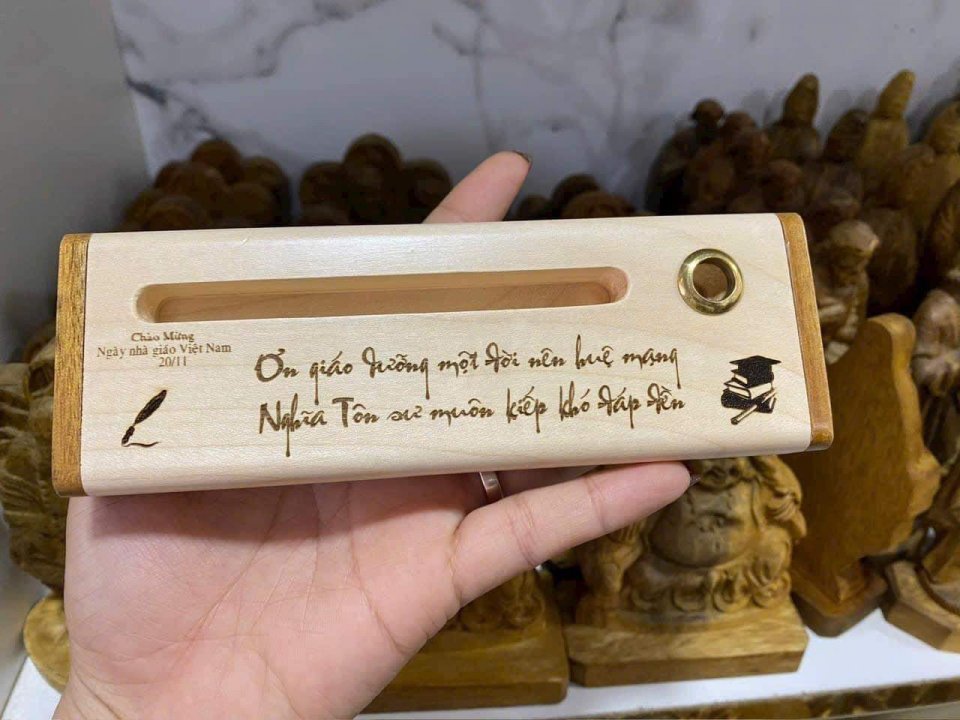 Chào Mừng
Ngày nhà giáo Việt Nam
20/11
Ơn giáo dưỡng một đời nên huệ mạng
Nghĩa Tôn sư muôn kiếp khó đáp đền